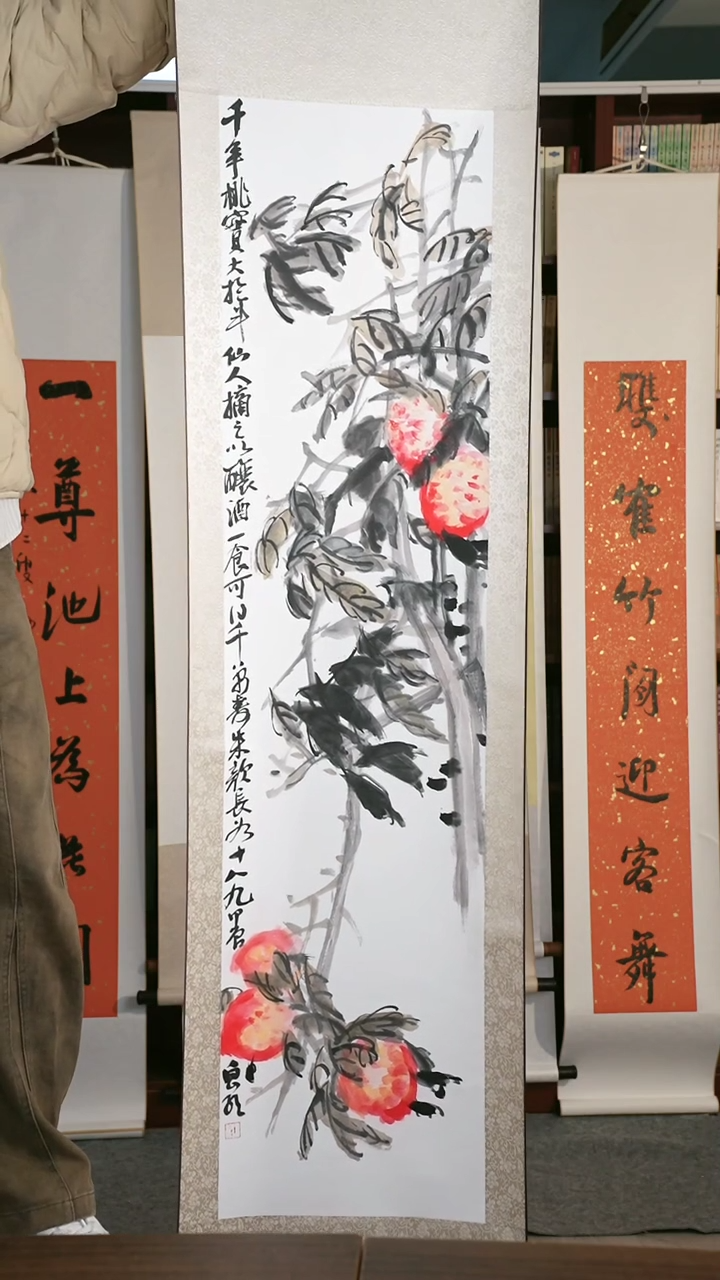 雙隺竹間迎客舞
千年桃實大於斗仙人摘之以釀酒一食可得千萬壽朱顏長如十八九
一尊池上為